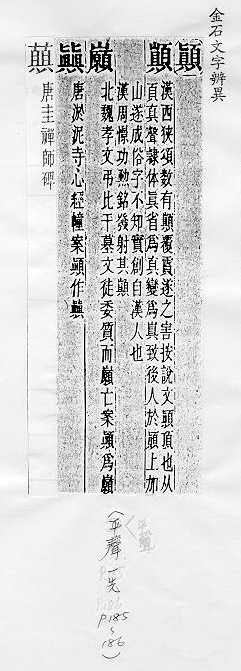 金石文字辨異
顚
顛
漢西狹頌数有顛覆霣隧之害按說文顚頂也从
頁真聲隸体真省為真變為真致後人於顚上加
山遂成俗字不知實創自漢人也
漢周憬功勲銘發射其顛
巓
北魏孝文弔比干墓文徒委質而巓亡案顚為巓
唐淤泥寺心經幢案顚作
唐圭禪師碑
(平聲一先 P.185~186)